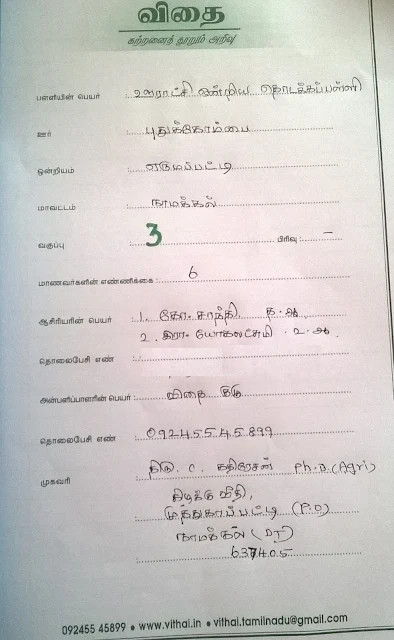 விதை
கற்றனைத் தூறும் அறிவு
பள்ளியின் பெயர் : ஊராட்சி ஒன்றிய தொடக்கப்பள்ளி
ஊர் : புதுக்கோம்பை
ஒன்றியம் : எருமப்பட்டி
மாவட்டம் : நாமக்கல்
வகுப்பு : 3 பிரிவு : –
மாணவர்களின் எண்ணிக்கை : 6
ஆசிரியரின் பெயர் : 1. கோ. சாந்தி த.ஆ
2. இரா. யோகலட்சுமி . உ.ஆ
தொலைபேசி எண் :
அன்பளிப்பாளரின் பெயர் : விதை குழு
தொலைபேசி எண் : 092455 45 899
முகவரி : திரு. C. கதிரேசன் Ph.D. (Agri)
கிழக்கு வீதி,
முத்துகாப்பட்டி (P.O)
நாமக்கல் (DT)
637405
092455 45899 • www.vithai.in • vithai.tamilnadu@gmail.com